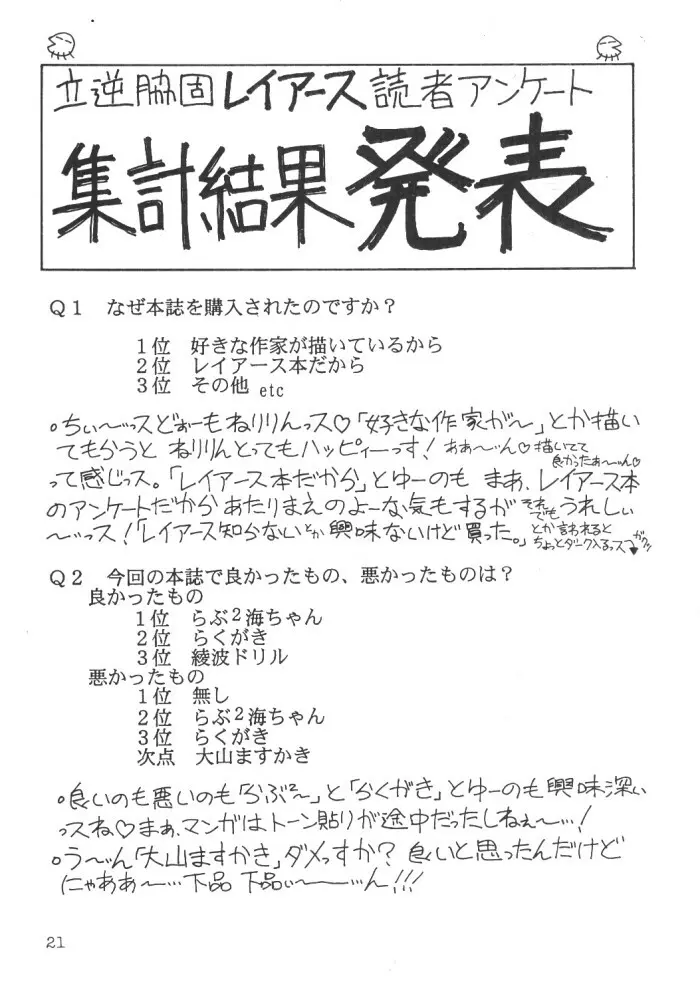 立逆脇固レイアース読者アンケート
集計結果発表
Q1 なぜ本誌を購入されたのですか?
1位 好きな作家が描いているから
2位 レイアース本だから
3位 その他 etc
○ちぃ〜〜ッスどぉーもねりりんっス♡「好きな作家が〜」とか描い
てもらうと ねりりんとってもハッピィーっす! あぁ〜ん♡描いてて
良かったぁ〜ん♡
って感じっス。「レイアース本だから」とゆーのも まぁ、レイアース本
のアンケートだから あたりまえのよーな気もするが それでもうれしぃ
〜〜ッス!「レイアース知らないとか興味ないけど買った。」とか言われると
ちょっとダーク入るっス
Q2 今回の本誌で良かったもの、悪かったものは?
良かったもの
1位 らぶ2海ちゃん
2位 らくがき
3位 綾波ドリル
悪かったもの
1位 無し
2位 らぶ2海ちゃん
3位 らくがき
次点 大山ますかき
○良いのも悪いのも「らぶ2〜」と「らくがき」とゆーのも興味深い
ッスね♡まぁ、マンガはトーン貼りが途中だったしねぇ〜…!
○う〜ん「大山ますかき」ダメっすか? 良いと思ったんだけど
にゃああ〜…下品 下品ぃ〜――…ん!!!
21